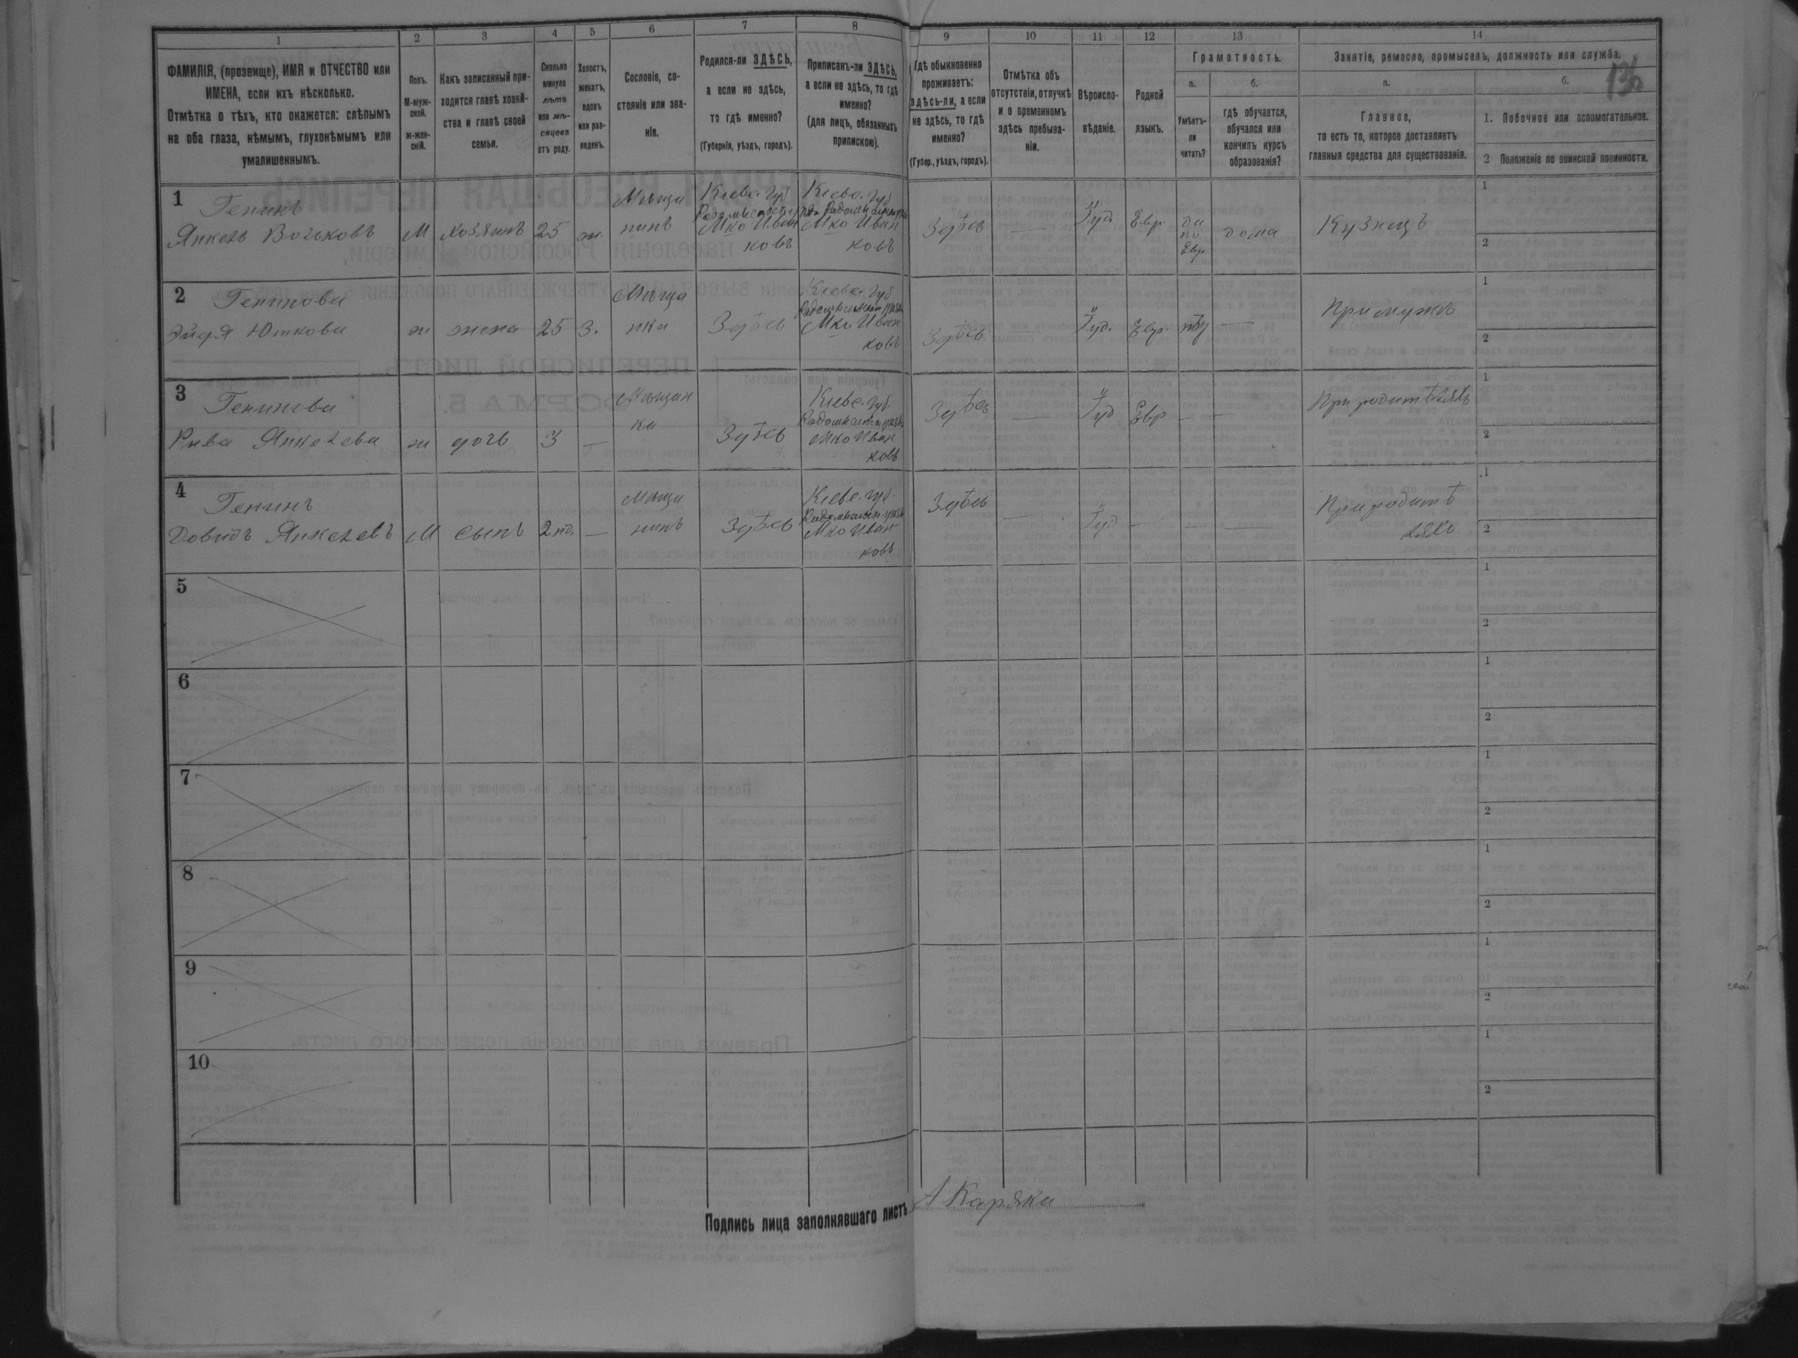 1 2 3 4 5 6 7 8 9 10 11 12 13 14
ФАМИЛІЯ, (прозвище), ИМЯ и ОТЧЕСТВО или
ИМЕНА, если ихъ нѣсколько.
Отмѣтка о тѣхъ, кто окажется: слѣпымъ
на оба глаза, нѣмымъ, глухонѣмымъ или
умалишеннымъ.
Полъ.
М-муж-
ской.
ж-жен-
скій.
Какъ записанный при-
ходится главѣ хозяй-
ства и главѣ своей
семьи.
Сколько
минуло
лѣтъ
или мѣ-
сяцевъ
отъ роду.
Холостъ,
женатъ,
вдовъ
или раз-
веденъ.
Сословіе, со-
стояніе или зва-
ніе.
Родился-ли ЗДѢСЬ,
а если не здѣсь,
то гдѣ именно?
(Губернія, уѣздъ, городъ).
Приписанъ-ли ЗДѢСЬ,
а если не здѣсь, то гдѣ
именно?
(для лицъ, обязанныхъ
припискою).
Гдѣ обыкновенно
проживаетъ:
здѣсь-ли, а если
не здѣсь, то гдѣ
именно?
(Губер., уѣздъ, городъ).
Отмѣтка объ
отсутствіи, отлучкѣ
и о временномъ
здѣсь пребыва-
ніи.
Вѣроиспо-
вѣданіе.
Родной
языкъ.
Грамотность.
а.
Умѣетъ-
ли
читать?
б.
гдѣ обучается,
обучался или
кончилъ курсъ
образованія?
Занятіе, ремесло, промыселъ, должность или служба.
а.
Главное,
то есть то, которое доставляетъ
главныя средства для существованія.
б.
1. Побочное или вспомогательное.
2 Положеніе по воинской повинности.
1
Генинъ
Янкель Вольковъ
М
хозяинъ
25
ж
Мѣща
нинъ
Кіевс. губ
Мко Иван
ковъ
Кіевс. губ
Мко Иван
ковъ
Здѣсь
—
Іуд
Евр
да
по
Евр
дома
Кузнецъ
1
2
2
Генинова
Юткова
ж
жена
25
з.
Мѣща
нка
Здѣсь
Кіевс. губ
Мко Иван
ковъ
Здѣсь
Іуд.
Евр.
нѣт
—
При мужѣ
1
2
3
Генинова
Рива Янкелева
ж
дочь
3
—
Мѣщан
ка
Здѣсь
Кіевс. губ
Мко Иван
ковъ
Здѣсь
—
Іуд
Евр
—
—
При родителяхъ
1
2
4
Генинъ
Довидъ Янкелевъ
М
сынъ
—
Мѣща
нинъ
Здѣсь
Кіевс. губ.
Мко Иван
ковъ
Здѣсь
—
Іуд
—
—
—
При родите
ляхъ
1
2
5
1
2
6
1
2
7
1
2
8
1
2
9
1
2
10
1
2
Подпись лица заполнявшаго листъ
А Каряка